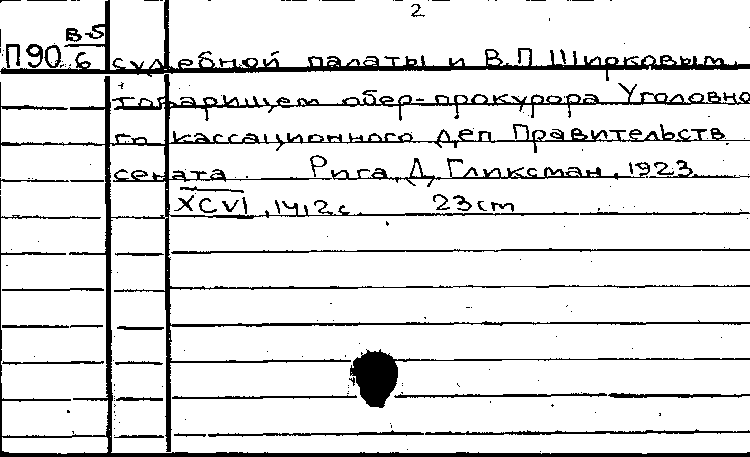 2
П90 В-5/6 судебной палаты и В.П. Ширковым,
товарищем обер-прокурора Уголовно
го кассационного деп Правительств
сената Рига, Д, Гликсман, 1923
XCVI, 1412 с. 23 cm